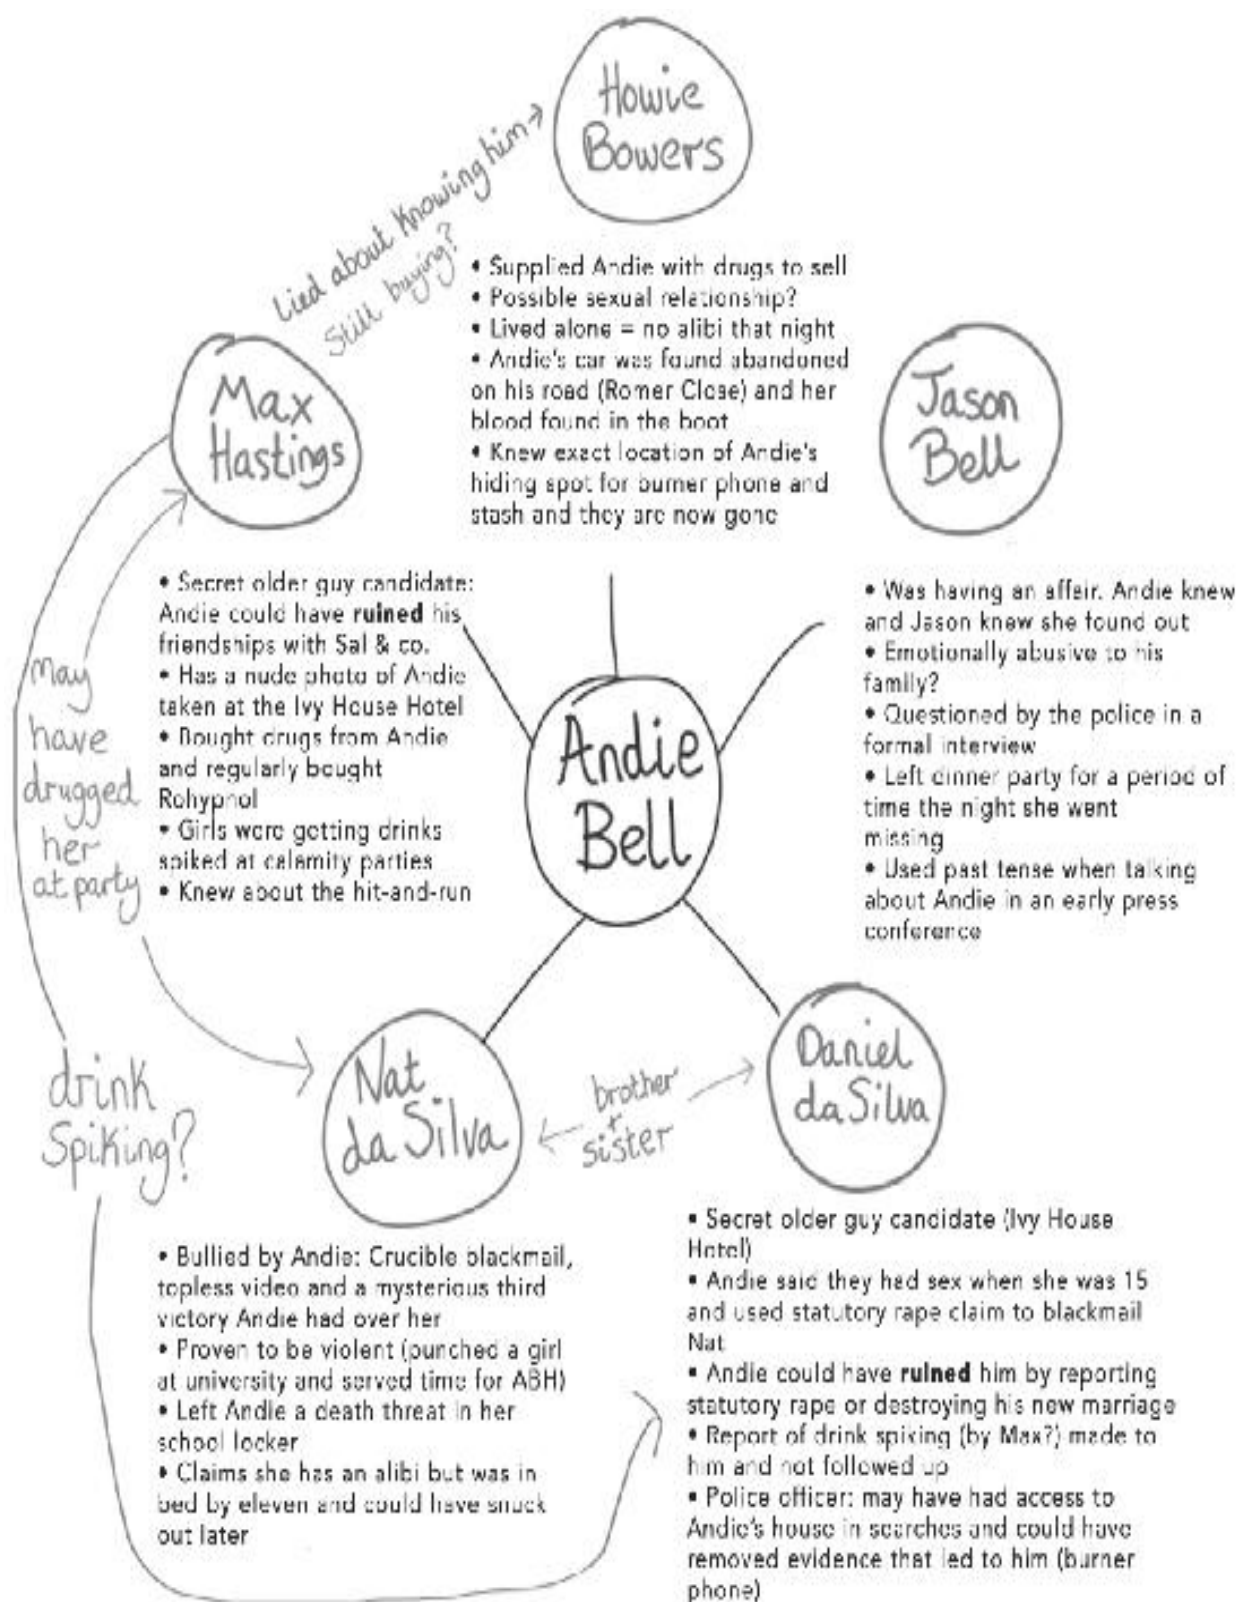 Howie
Bowers
Lied about Knowing him
Still buying?
• Supplied Andie with drugs to sell
• Possible sexual relationship?
• Lived alone = no alibi that night
• Andie's car was found abandoned
on his road (Romer Close) and her
blood found in the boot
• Knew exact location of Andie's
hiding spot for burner phone and
stash and they are now gone
Max
Hastings
Jason
Bell
• Secret older guy candidate:
Andie could have ruined his
friendships with Sal & co.
• Has a nude photo of Andie
taken at the Ivy House Hotel
• Bought drugs from Andie
and regularly bought
Rohypnol
• Girls were getting drinks
spiked at calamity parties
• Knew about the hit-and-run
• Was having an affair. Andie knew
and Jason knew she found out
• Emotionally abusive to his
family?
• Questioned by the police in a
formal interview
• Left dinner party for a period of
time the night she went
missing
• Used past tense when talking
about Andie in an early press
conference
may
have
drugged
her
at party
Andie
Bell
drink
Spiking?
Nat
da Silva
brother
+
sister
Daniel
da Silva
• Bullied by Andie: Crucible blackmail,
topless video and a mysterious third
victory Andie had over her
• Proven to be violent (punched a girl
at university and served time for ABH)
• Left Andie a death threat in her
school locker
• Claims she has an alibi but was in
bed by eleven and could have snuck
out later
• Secret older guy candidate (Ivy House
Hotel)
• Andie said they had sex when she was 15
and used statutory rape claim to blackmail
Nat
• Andie could have ruined him by reporting
statutory rape or destroying his new marriage
• Report of drink spiking (by Max?) made to
him and not followed up
• Police officer: may have had access to
Andie's house in searches and could have
removed evidence that led to him (burner
phone)